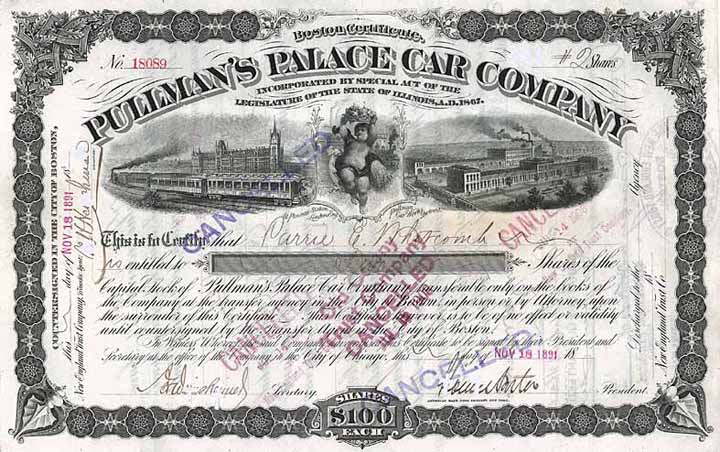 Boston Certificate.
No. 18089
# 2 Shares
PULLMAN'S PALACE CAR COMPANY
INCORPORATED BY SPECIAL ACT OF THE
LEGISLATURE OF THE STATE OF ILLINOIS, A.D. 1867.
COUNTERSIGNED IN THE CITY OF BOSTON,
this day of NOV 18 1891 18
New England Trust Company, Transfer Agent
CANCELLED
CANCELLED
This is to Certify that Carrie E.
is entitled to Shares of the
Capital Stock of Pullman's Palace Car Company transferable only on the books of
the Company at the transfer agency in the City of Boston in person or by Attorney, upon
the surrender of this Certificate. This is not to be of any effect or validity
until countersigned by the Transfer Agent in the City of Boston.
In Witness Whereof the said Company has caused this Certificate to be signed by their President and
Secretary at the office of the Company in the City of Chicago, this day of NOV 18 1891 18
CANCELLED
CANCELLED
CANCELLED
Secretary.
President.
AMERICAN BANK NOTE COMPANY, NEW YORK.
SHARES
$100
EACH
Agency
Discharged to the 18
New England Trust Co.